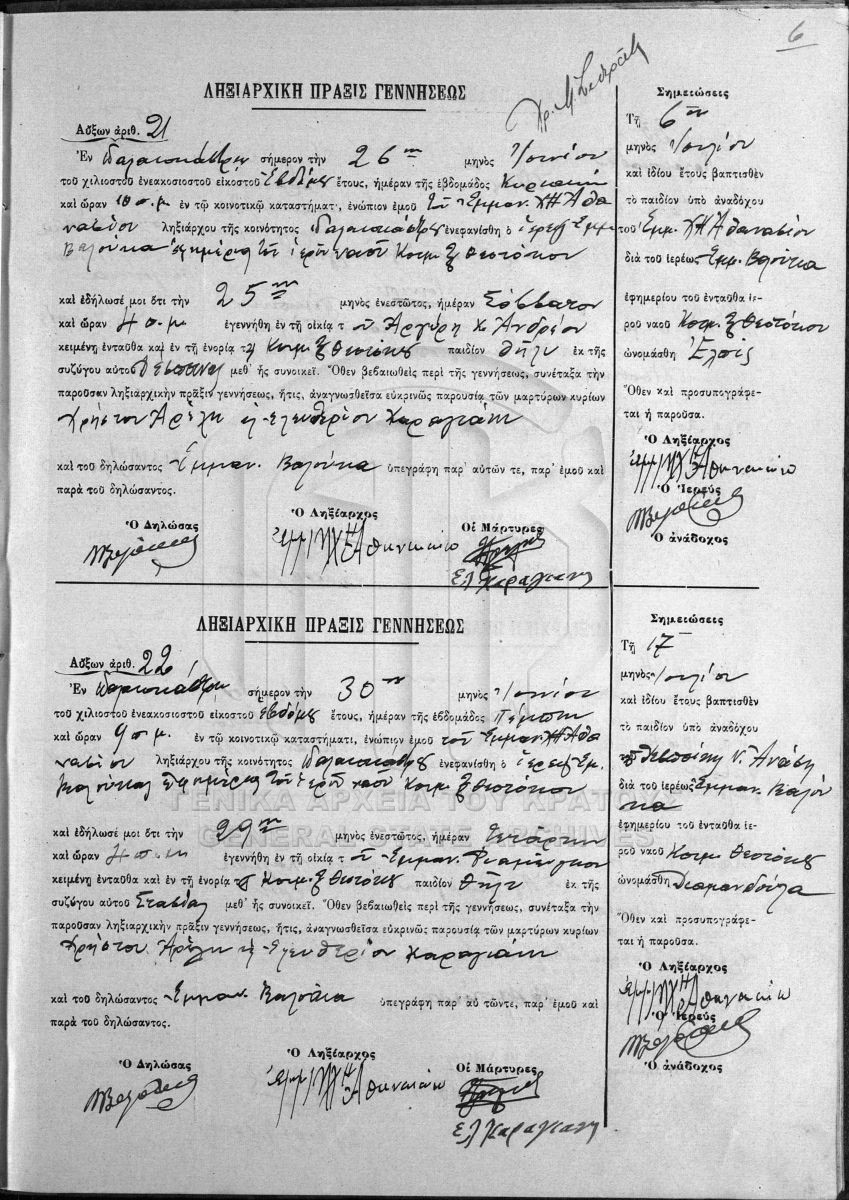 6
ΛΗΞΙΑΡΧΙΚΗ ΠΡΑΞΙΣ ΓΕΝΝΗΣΕΩΣ
Αὔξων ἀριθ. 21
Ἐν σήμερον τὴν 26ην μηνὸς Ἰουνίου
τοῦ χιλιοστοῦ ἐνεακοσιοστοῦ εἰκοστοῦ Ἑβδόμου ἔτους, ἡμέραν τῆς ἑβδομάδος Κυριακὴν
καὶ ὥραν 10 π.μ. ἐν τῷ κοινοτικῷ καταστήματι, ἐνώπιον ἐμοῦ τοῦ Ἐμμαν. Χ''Ἀθα
νασίου ληξιάρχου τῆς κοινότητος ἐνεφανίσθη ὁ ἱερεὺς Ἐμμ.
Βαλούκα ἐφημέριος τοῦ ἱεροῦ ναοῦ Κοιμ. Θεοτόκου
καὶ ἐδήλωσέ μοι ὅτι τὴν 25ην μηνὸς ἐνεστῶτος, ἡμέραν Σάββατον
καὶ ὥραν 4 π.μ. ἐγεννήθη ἐν τῇ οἰκίᾳ τοῦ Ἀργύρη Χ Ἀνδρέου
κειμένῃ ἐνταῦθα καὶ ἐν τῇ ἐνορίᾳ τῆς Κοιμ. Θεοτόκου παιδίον θῆλυ ἐκ τῆς
συζύγου αὐτοῦ Δέσποινης μεθ' ἧς συνοικεῖ. Ὅθεν βεβαιωθεὶς περὶ τῆς γεννήσεως, συνέταξα τὴν
παροῦσαν ληξιαρχικὴν πρᾶξιν γεννήσεως, ἥτις, ἀναγνωσθεῖσα εὐκρινῶς παρουσίᾳ τῶν μαρτύρων κυρίων
Χρήστου Ἀρέλη Ἐλευθερίου Καραγιάνη
καὶ τοῦ δηλώσαντος Ἐμμαν. Βαλούκα ὑπεγράφη παρ' αὐτῶν τε, παρ' ἐμοῦ καὶ
παρὰ τοῦ δηλώσαντος.
Ὁ Δηλώσας Ὁ Ληξίαρχος Οἱ Μάρτυρες
Ἐμμ Χ''Ἀθανασίου
Ἐλ Καραγιάνη
Σημειώσεις
Τῇ 6ην
μηνὸς Ἰουλίου
καὶ ἰδίου ἔτους βαπτισθὲν
τὸ παιδίον ὑπὸ ἀναδόχου
τοῦ Ἐμμ. Χ''Ἀθανασίου
διὰ τοῦ ἱερέως Ἐμμ. Βαλούκα
ἐφημερίου τοῦ ἐνταῦθα ἱε-
ροῦ ναοῦ Κοιμ. Θεοτόκου
ὠνομάσθη Ἐλπίς
Ὅθεν καὶ προσυπογράφε-
ται ἡ παροῦσα.
Ὁ Ληξίαρχος
Ἐμμ Χ''Ἀθανασίου
Ὁ Ἱερεὺς
Ὁ ἀνάδοχος
ΛΗΞΙΑΡΧΙΚΗ ΠΡΑΞΙΣ ΓΕΝΝΗΣΕΩΣ
Αὔξων ἀριθ. 22
Ἐν σήμερον τὴν 30ην μηνὸς Ἰουνίου
τοῦ χιλιοστοῦ ἐνεακοσιοστοῦ εἰκοστοῦ Ἑβδόμου ἔτους, ἡμέραν τῆς ἑβδομάδος Πέμπτην
καὶ ὥραν 9 π.μ. ἐν τῷ κοινοτικῷ καταστήματι, ἐνώπιον ἐμοῦ τοῦ Ἐμμαν Χ''Ἀθα
νασίου ληξιάρχου τῆς κοινότητος ἐνεφανίσθη ὁ ἱερεὺς Ἐμ.
Βαλούκας ἐφημέριος τοῦ ἱεροῦ ναοῦ Κοιμ. Θεοτόκου
καὶ ἐδήλωσέ μοι ὅτι τὴν 29ην μηνὸς ἐνεστῶτος, ἡμέραν Τετάρτην
καὶ ὥραν 4 π.μ. ἐγεννήθη ἐν τῇ οἰκίᾳ τοῦ Ἐμμαν.
κειμένῃ ἐνταῦθα καὶ ἐν τῇ ἐνορίᾳ τῆς Κοιμ. Θεοτόκου παιδίον θῆλυ ἐκ τῆς
συζύγου αὐτοῦ μεθ' ἧς συνοικεῖ. Ὅθεν βεβαιωθεὶς περὶ τῆς γεννήσεως, συνέταξα τὴν
παροῦσαν ληξιαρχικὴν πρᾶξιν γεννήσεως, ἥτις, ἀναγνωσθεῖσα εὐκρινῶς παρουσίᾳ τῶν μαρτύρων κυρίων
Χρήστου Ἀρέλη Ἐλευθερίου Καραγιάνη
καὶ τοῦ δηλώσαντος Ἐμμαν. Βαλούκα ὑπεγράφη παρ' αὐ τῶντε, παρ' ἐμοῦ καὶ
παρὰ τοῦ δηλώσαντος.
Ὁ Δηλώσας Ὁ Ληξίαρχος Οἱ Μάρτυρες
Ἐμμ Χ''Ἀθανασίου
Ἐλ Καραγιάνη
Σημειώσεις
Τῇ 17
μηνὸς Ἰουλίου
καὶ ἰδίου ἔτους βαπτισθὲν
τὸ παιδίον ὑπὸ ἀναδόχου
διὰ τοῦ ἱερέως Ἐμμαν. Βαλού
κα
ἐφημερίου τοῦ ἐνταῦθα ἱε-
ροῦ ναοῦ Κοιμ. Θεοτόκου
ὠνομάσθη Διαμανδούλα
Ὅθεν καὶ προσυπογράφε-
ται ἡ παροῦσα.
Ὁ Ληξίαρχος
Ἐμμ Χ''Ἀθανασίου
Ὁ Ἱερεὺς
Ὁ ἀνάδοχος
ΓΕΝΙΚΑ ΑΡΧΕΙΑ ΤΟΥ ΚΡΑΤΟΥΣ
GENERAL STATE ARCHIVES